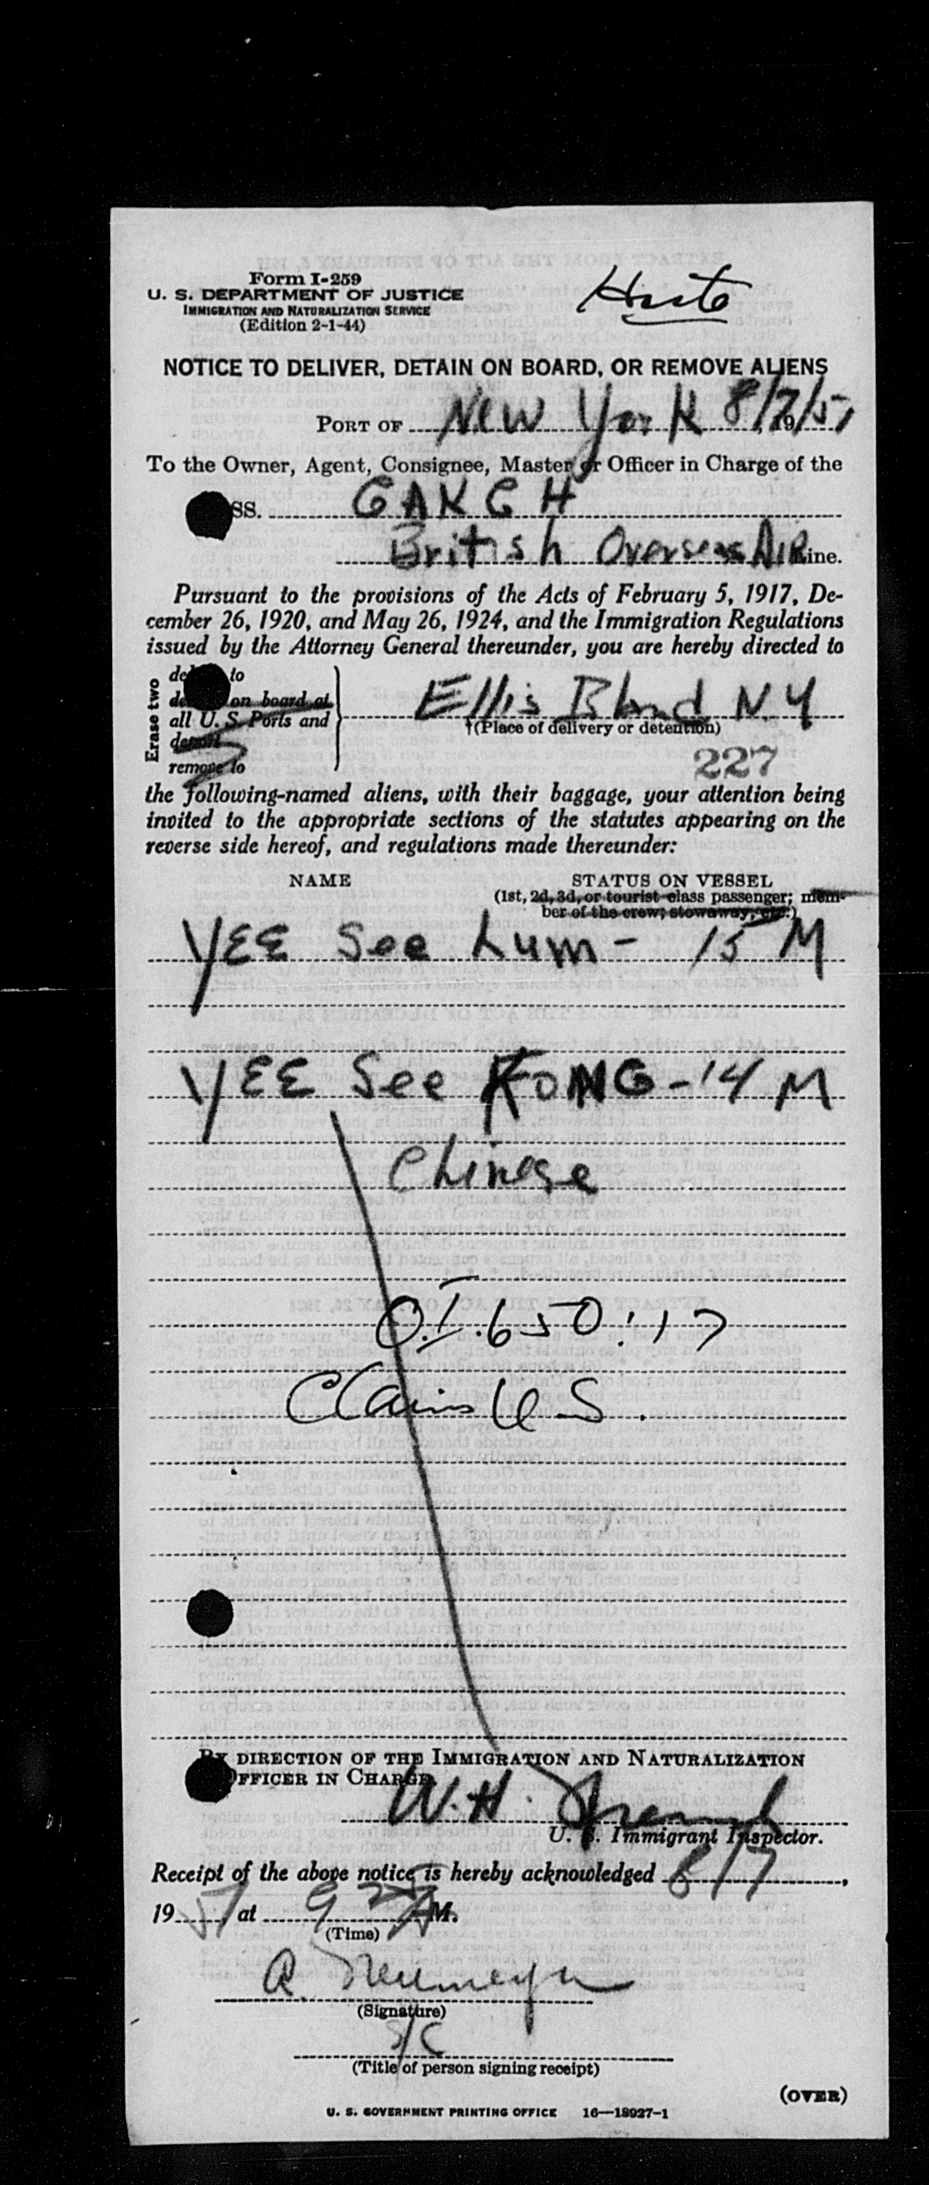 Form I-259
U. S. DEPARTMENT OF JUSTICE
IMMIGRATION AND NATURALIZATION SERVICE
(Edition 2-1-44)
NOTICE TO DELIVER, DETAIN ON BOARD, OR REMOVE ALIENS
PORT OF New York 8/7/51
To the Owner, Agent, Consignee, Master or Officer in Charge of the
SS. GAKGH
British Overseas Air Line.
Pursuant to the provisions of the Acts of February 5, 1917, De-
cember 26, 1920, and May 26, 1924, and the Immigration Regulations
issued by the Attorney General thereunder, you are hereby directed to
Erase two
to
on board at
all U. S. Ports and
deport
remove to
Ellis Island N.Y
†(Place of delivery or detention)
227
the following-named aliens, with their baggage, your attention being
invited to the appropriate sections of the statutes appearing on the
reverse side hereof, and regulations made thereunder:
NAME STATUS ON VESSEL
(1st, 2d, 3d, or tourist class passenger; mem-
ber of the crew; stowaway, etc.)
YEE See Lum - 15 M
YEE See KONG - 14 M
Chinese
O.I. 650:17
Claims US.
BY DIRECTION OF THE IMMIGRATION AND NATURALIZATION
OFFICER IN CHARGE
W. H.
U. S. Immigrant Inspector.
Receipt of the above notice is hereby acknowledged 8/7,
1951, at 9 A M.
(Time)
A.
(Signature)
(Title of person signing receipt)
(OVER)
U. S. GOVERNMENT PRINTING OFFICE 16—18927-1